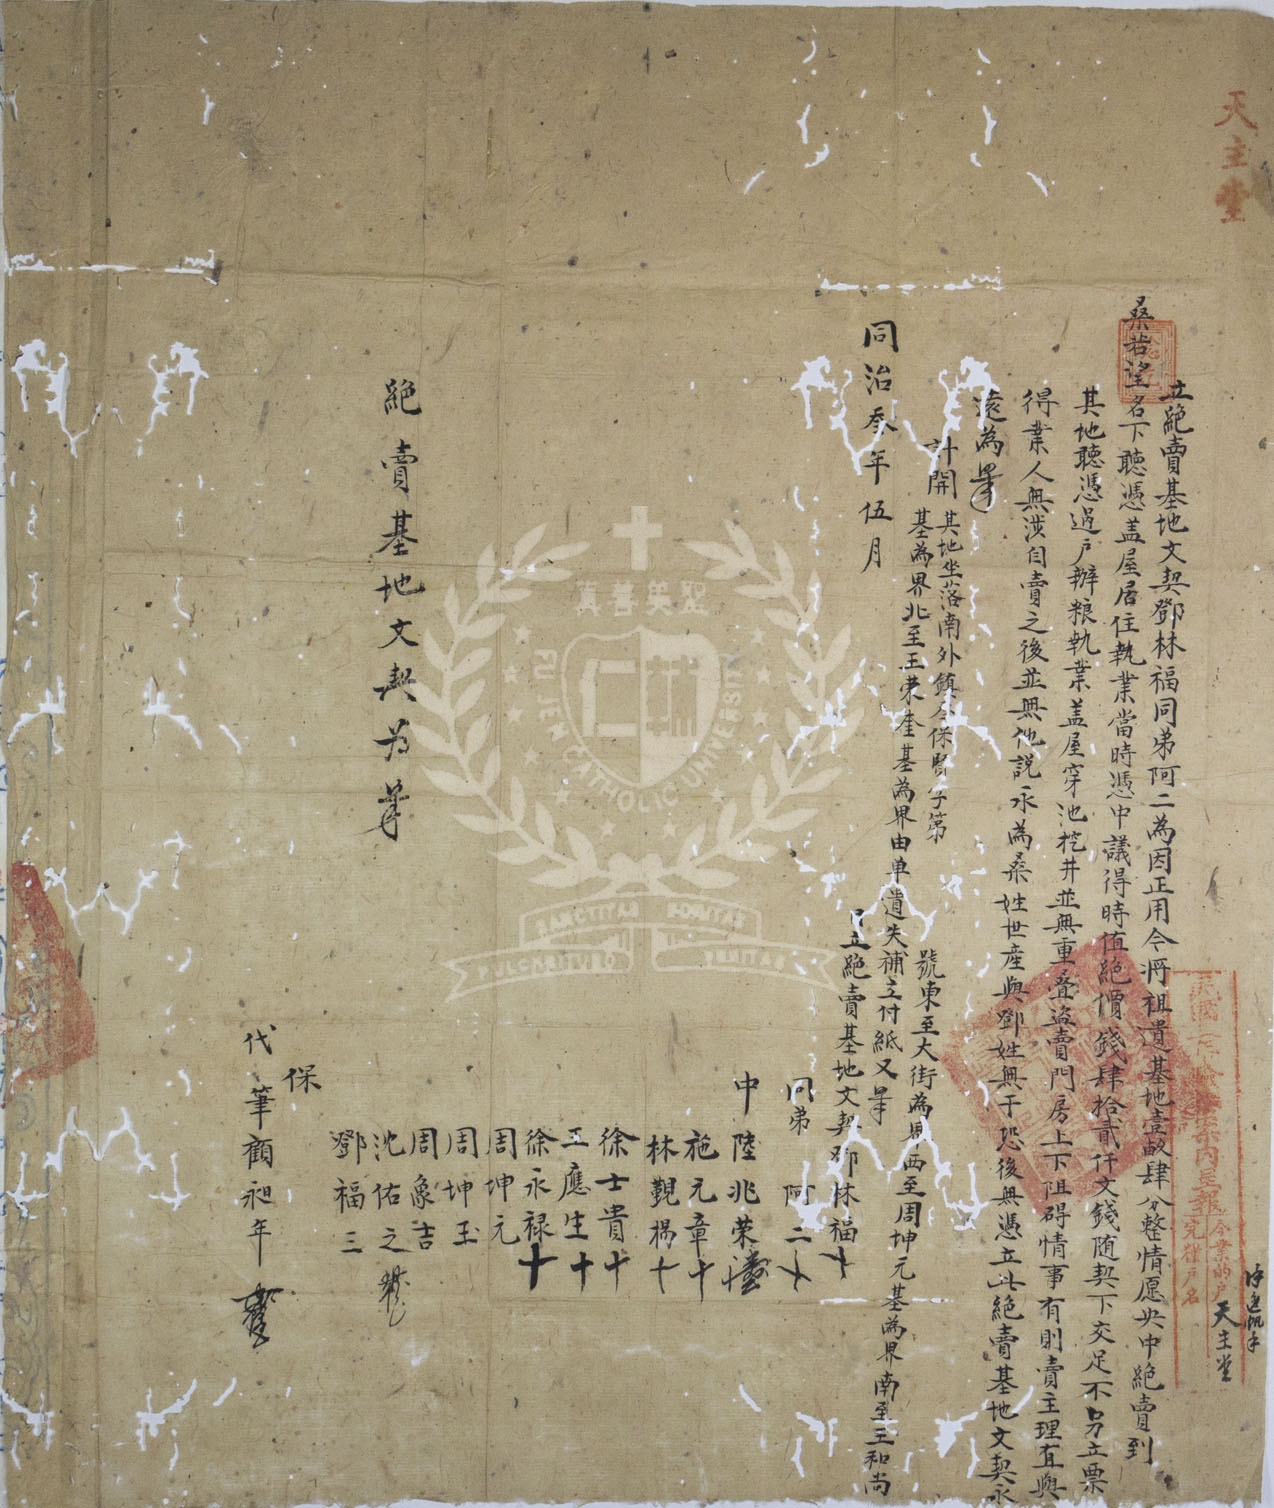 天主堂
立絕賣基地文契鄧林福同弟阿二為因正用今將祖遺基地壹畝肆分整情愿央中絕賣到
桑若望名下聽憑盖屋居住執業當時憑中議得時值絕價錢肆拾貳仟文錢随契下交足不另立票
其地聽憑過戶辦粮執業盖屋穿池挖井並無重叠盜賣門房上下阻碍情事有則賣主理直與
得業人無涉自賣之後並無他說永為桑姓世産與鄧姓無干恐後無憑立此絕賣基地文契永
遠為據
計開
其地坐落南外鎮保賢字第 號東至大街為界西至周坤元基為界南至王和尚
基為界北至王荣奎基為界由单遺失補立付紙又據
同治叁年伍月 日立絕賣基地文契鄧林福十
同弟 阿二十
中 陸兆荣
施元章十
林觀楊十
徐士貴十
王應生十
徐永禄十
周坤元
周坤玉
周象吉
沈佑之
鄧福三
保
代筆顧昶年
絕賣基地文契為據
案内呈報
今業的户 天主堂
完粮户名
FU JEN CATHOLIC UNIVERSITY
真善美聖
SANCTITAS BONITAS
PULCHRITUDO VERITAS